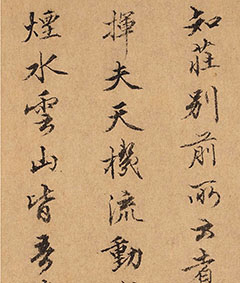 知莊別前所云者
揮夫天機流動
煙水雲山皆吾